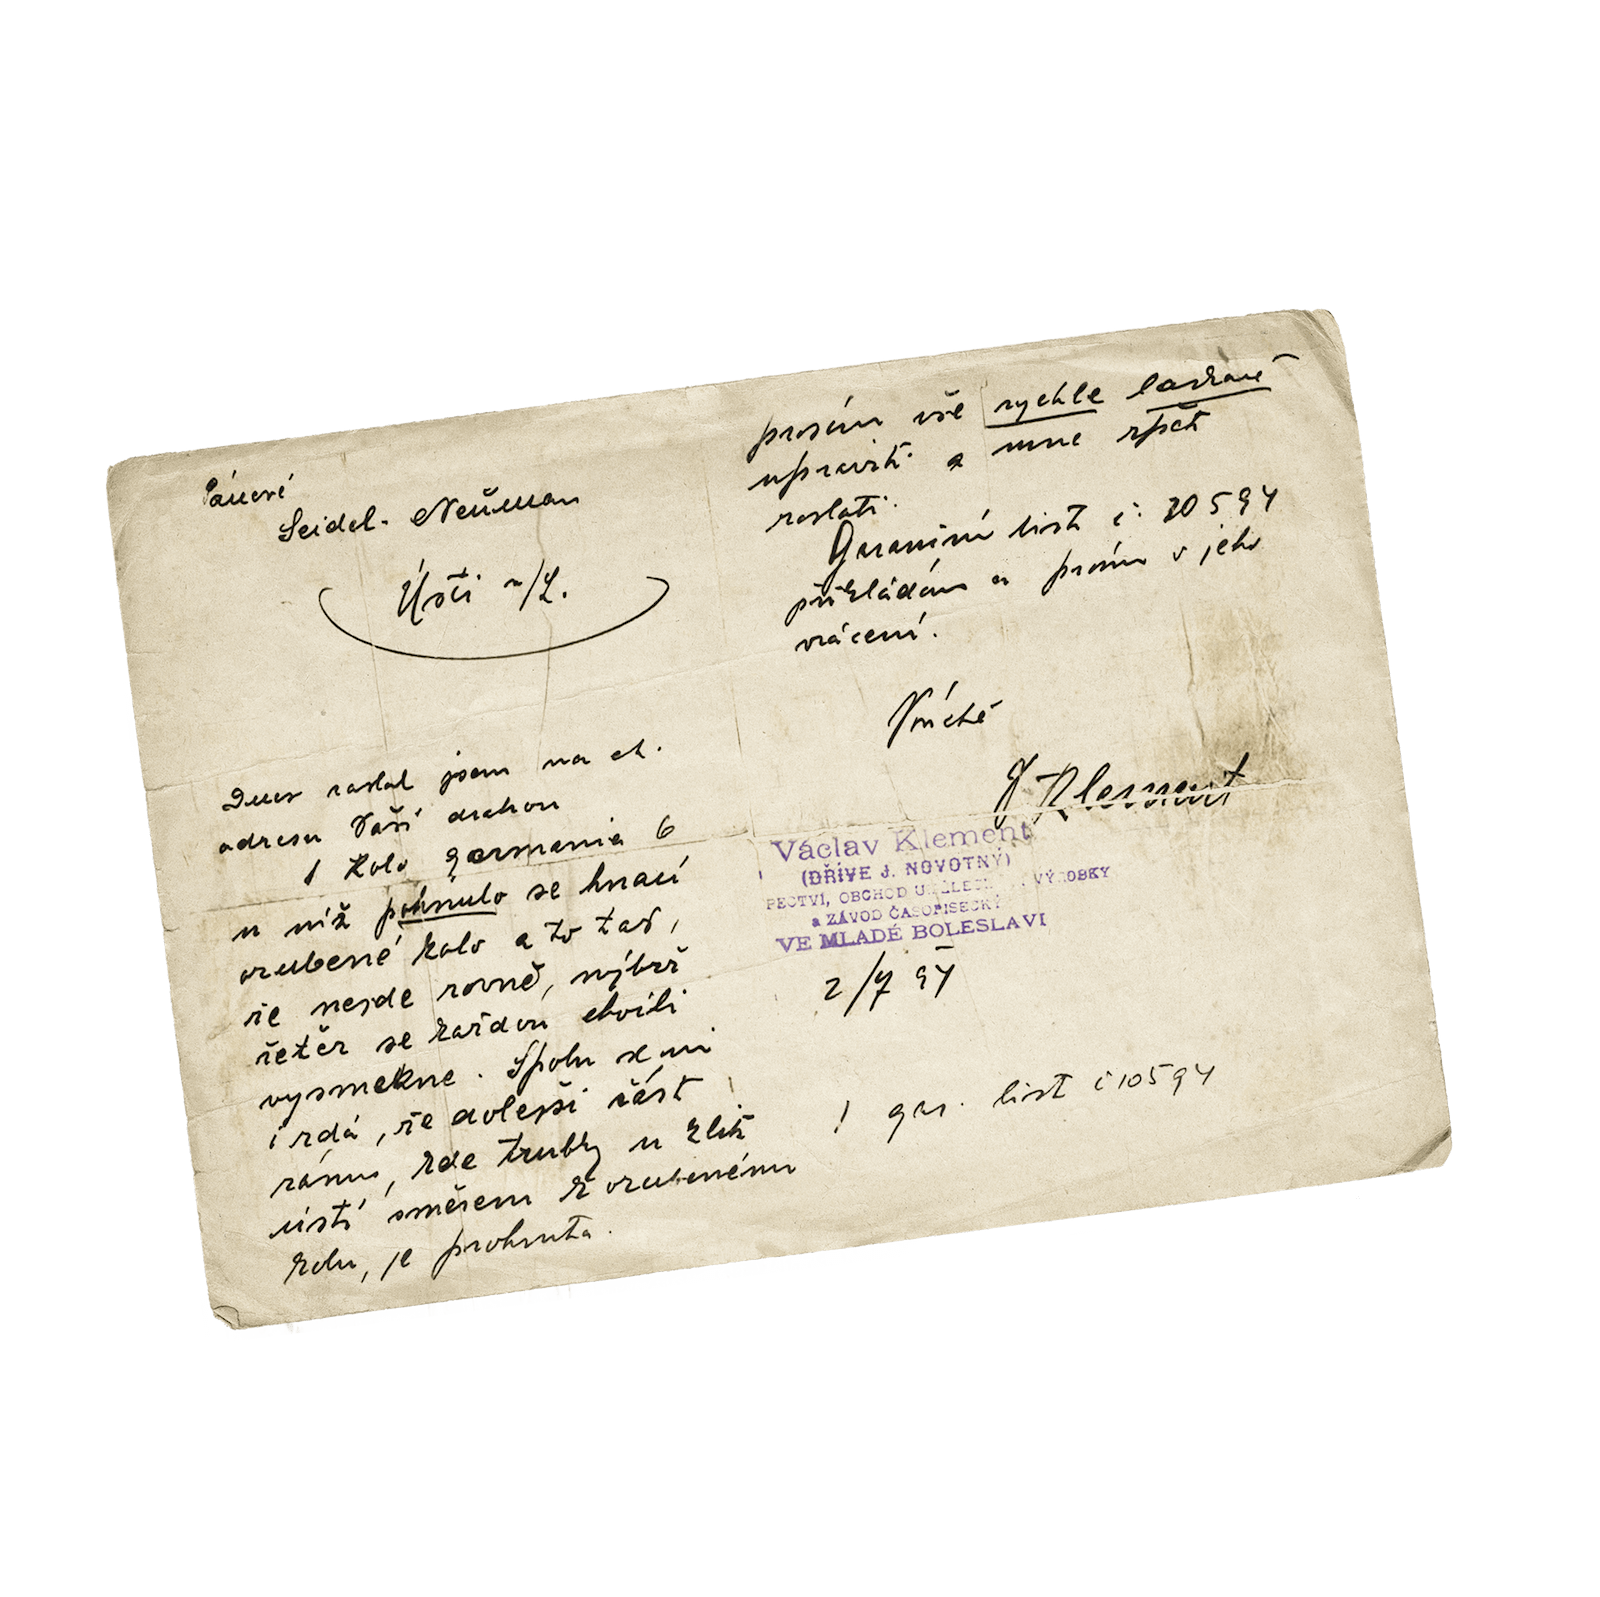 Pánové
Seidel - Neuman
Ústí n/L.
Dnes zaslal jsem na ct.
adresu Vaší drahou
1 kolo germania 6
u níž pohnulo se hnací
ozubené kolo a to tak,
že nejde rovně, nýbrž
řetěz se každou chvíli
vysmekne. Spolu se mi
i zdá, že dolejší část
rámu, kde trubky u klik
ústí směrem k ozubenému
kolu, je prohnuta.
prosím vše rychle laskavě
upraviti a mne zpět
zaslati.
Garanční list č. 20594
přikládám a prosím o jeho
vrácení.
V úctě
Klement
Václav Klement
(DŘÍVE J. NOVOTNÝ)
PECTVÍ, OBCHOD UMĚLECK. VÝROBKY
a ZÁVOD ČASOPISECKÝ
VE MLADÉ BOLESLAVI
2/7 95
1 gar. list č 10594